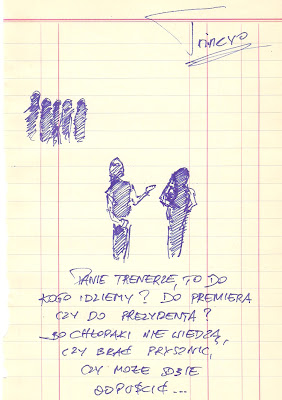 PANIE TRENERZE, TO DO
KOGO IDZIEMY? DO PREMIERA
CZY DO PREZYDENTA?
BO CHŁOPAKI NIE WIEDZĄ,
CZY BRAĆ PRYSZNIC,
CZY MOŻE SOBIE
ODPUŚCIĆ...